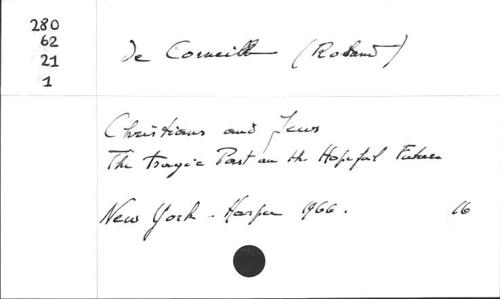 280
62
21
1
de Corneille (Roland)
Christians and Jews
The Tragic Past an the Hopeful Future
New York - Harper 1966. 16